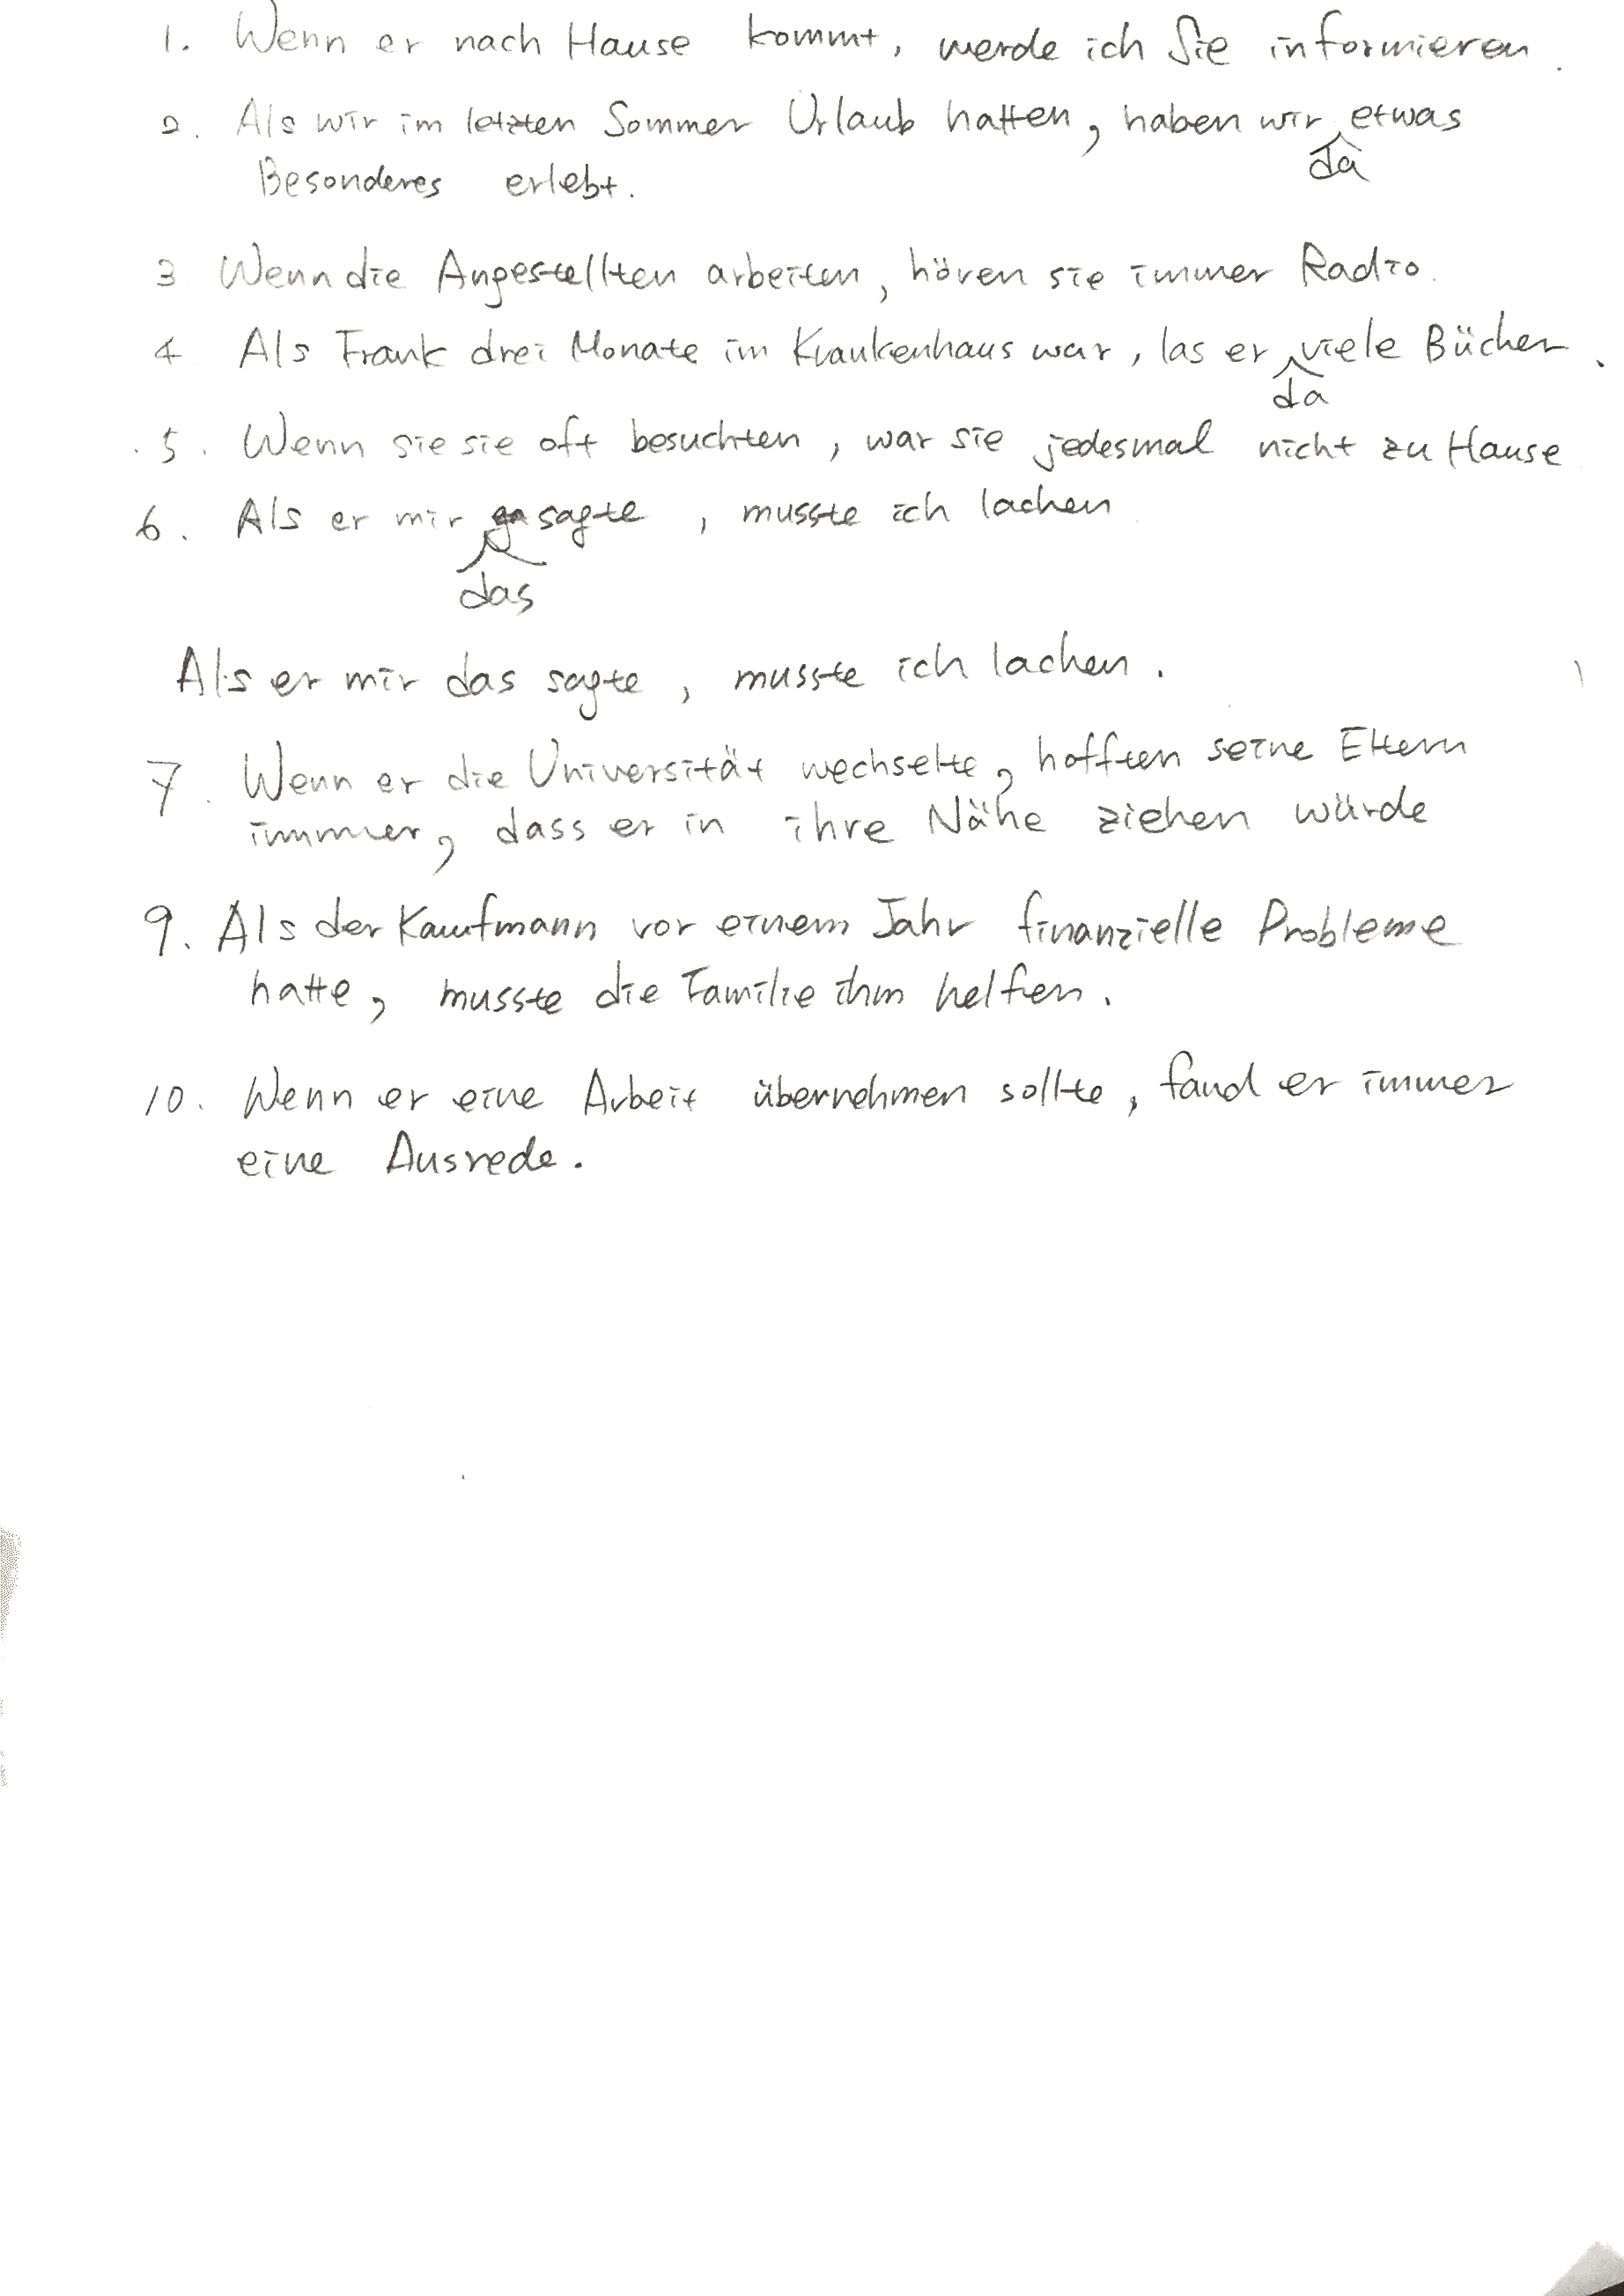 1. Wenn er nach Hause kommt, werde ich Sie informieren.
2. Als wir im letzten Sommer Urlaub hatten, haben wir da etwas
Besonderes erlebt.
3 Wenn die Angestellten arbeiten, hören sie immer Radio.
4 Als Frank drei Monate im Krankenhaus war, las er da viele Bücher.
5. Wenn sie sie oft besuchten, war sie jedesmal nicht zu Hause
6. Als er mir das sagte, musste ich lachen
Als er mir das sagte, musste ich lachen.
7. Wenn er die Universität wechselte, hofften seine Eltern
immer, dass er in ihre Nähe ziehen würde
9. Als der Kaufmann vor einem Jahr finanzielle Probleme
hatte, musste die Familie ihm helfen.
10. Wenn er eine Arbeit übernehmen sollte, fand er immer
eine Ausrede.